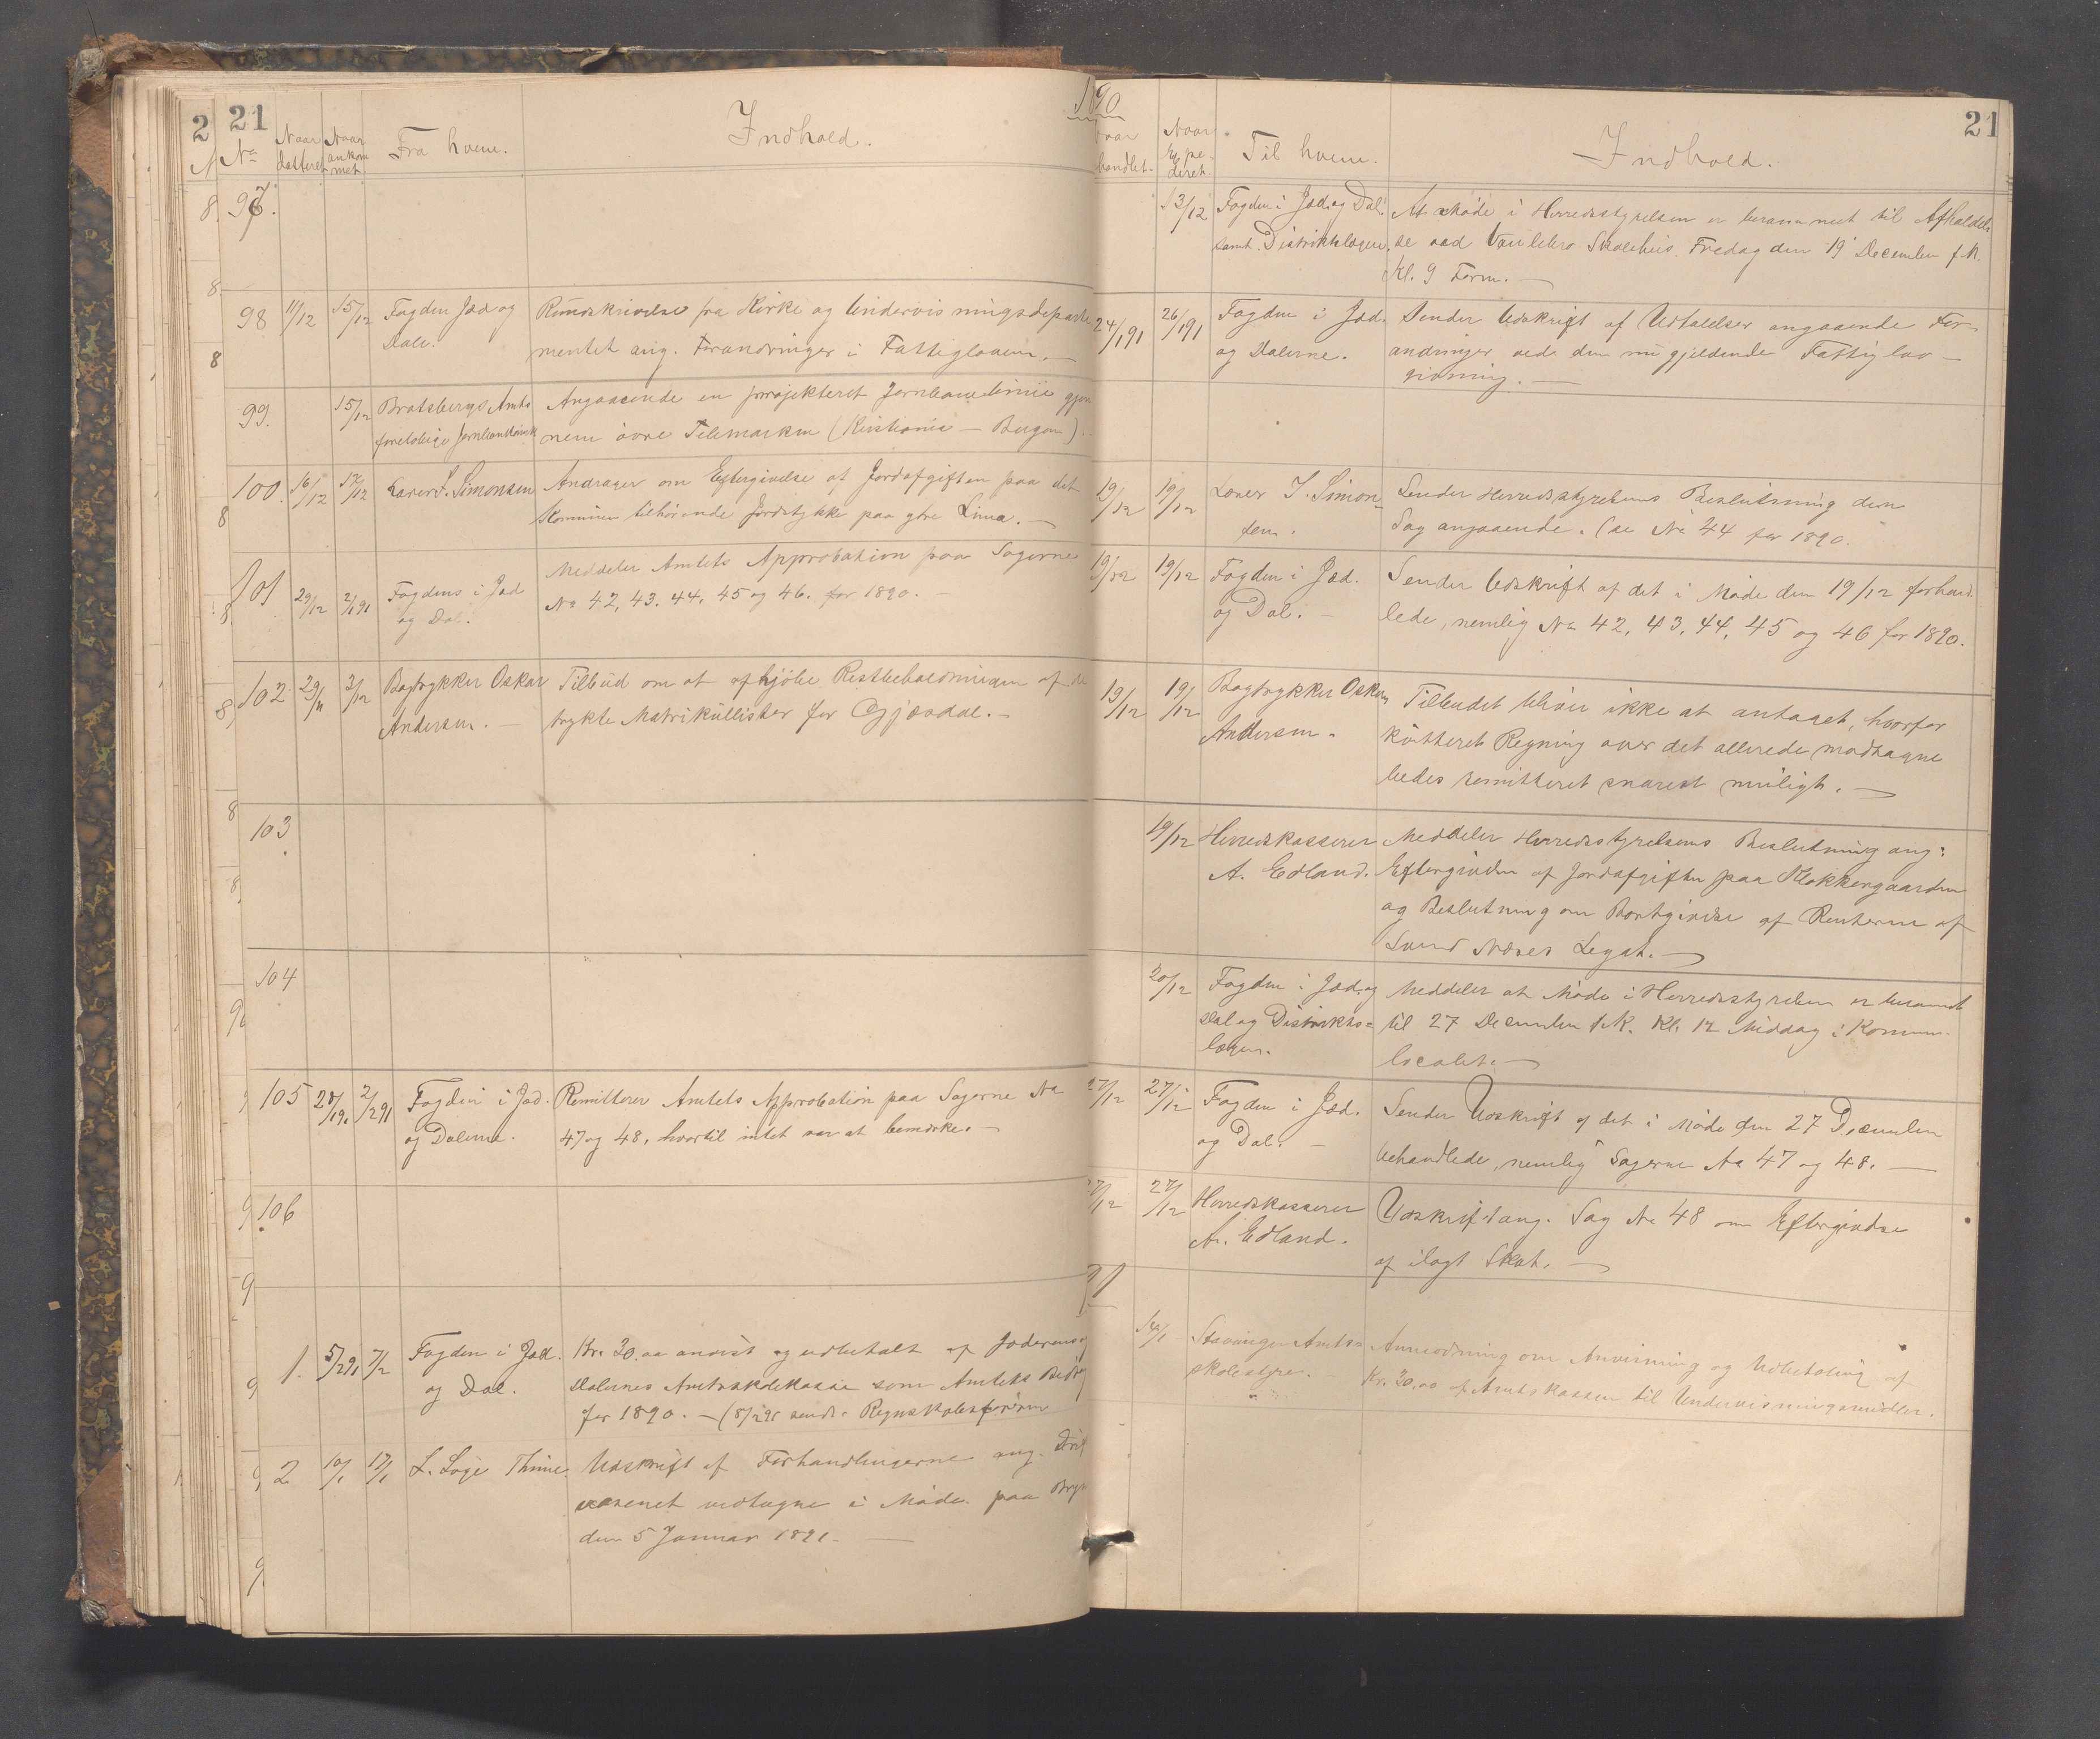 21
2
1890
21
No
Naar datteret
Naar ankommet
Fra hvem.
Indhold.
Naar handlet.
Naar Expederet.
Til hvem.
Indhold.
97.
13/12
Fogden i Jæd. og Dal.
samt Distriktslægen.
At Møde i Herredsstyrelsen er berammet til Afholdel-
se ved Skolehus Fredag den 19 December f. K.
Kl. 9 Form. —
98
11/12
15/12
Fogden Jæd og
Dale.
Rundskrivelse fra Kirke og Undervisningsdeparte
mentet ang. Forandringer i Fattigloven. —
24/1 91
26/1 91
Fogden i Jæd.
og Dalerne.
Sender Udskrift af Udtalelser angaaende For-
andringer ved den nu gjeldende Fattiglov-
givning. —
99.
15/12
Bratsbergs Amts
foreløbige
Angaaende en projekteret Jernbanelinie gjen
nem övre Telemarken (Kristiania — Bergen).
100.
16/12
17/12
Larer S. Simonsen
Andrager om Eftergivelse af Jordafgiften paa det
Kommunen tilhørende Jordstykke paa ytre Lima. —
19/12
19/12
Larer S. Simon-
sen.
Sender Herredsstyrelsens Beslutning den
Sag angaaende. (se No 44 for 1890.
101
29/12
2/1 91
Fogdens i Jæd
og Dal.
Meddeler Amtets Approbation paa Sagerne
No 42, 43, 44, 45 og 46. for 1890. —
19/12
19/12
Fogden i Jæd.
og Dal. —
Sender Udskrift af det i Møde den 19/12 forhand
lede, nemlig No 42, 43, 44, 45 og 46 for 1890.
102
29/11
3/12
Bogtrykker Oskar
Andersen. —
Tilbud om at afkjøbe Restbeholdningen af de
trykte Matrikullister for Gjæsdal. —
19/12
19/12
Bogtrykker Oskar
Andersen.
Tilbudet bliver ikke at antaget, hvorfor
kvitteret Regning over det allerede modtagne
bedes remitteret snarest muligt. —
103
19/12
Herredskasserer
A. Edland.
Meddeler Herredsstyrelsens Beslutning ang:
Eftergivelse af Jordafgiften paa Klokkergaarden
og Beslutning om Bortgivelse af Renterne af
Svend Næses Legat. —
104
20/12
Fogden i Jæd. og
Dal og Distrikts-
lægen.
Meddeler at Møde i Herredsstyrelsen er berammet
til 27 December f.K. Kl. 12 Middag i Kommu-
localet. —
105
2/2 91
Fogden i Jæd.
og Dalerne.
Remitterer Amtets Approbation paa Sagerne No
47 og 48, hvortil intet var at bemærke. —
27/12
27/12
Fogden i Jæd.
og Dal. —
Sender Udskrift af det i Møde den 27 December
behandlede, nemlig Sagerne No 47 og 48. —
106
27/12
27/12
Herredskasserer
A. Edland.
Udskrift ang. Sag No 48 om Eftergivelse
af ilagt Skat. —
91
1.
5/2 91
7/2
Fogden i Jæd.
og Dal.
Kr. 30.00 anvist og udbetalt af Jæderens og
Dalernes Amtsskolekasse som Amtets Bidrag
for 1890. — (8/2 91 sendt Regnskabsføreren
14/1
Stavanger Amts-
skolestyre.
Anmodning om Anvisning og Udbetaling af
Kr. 30,00 af Amtskassen til Undervisningsmidler.
2
10/1
17/1
L. Lage Thime.
Udskrift af Forhandlingerne ang.
væsenet vedtagne i Møde paa
den 5 Januar 1891. —